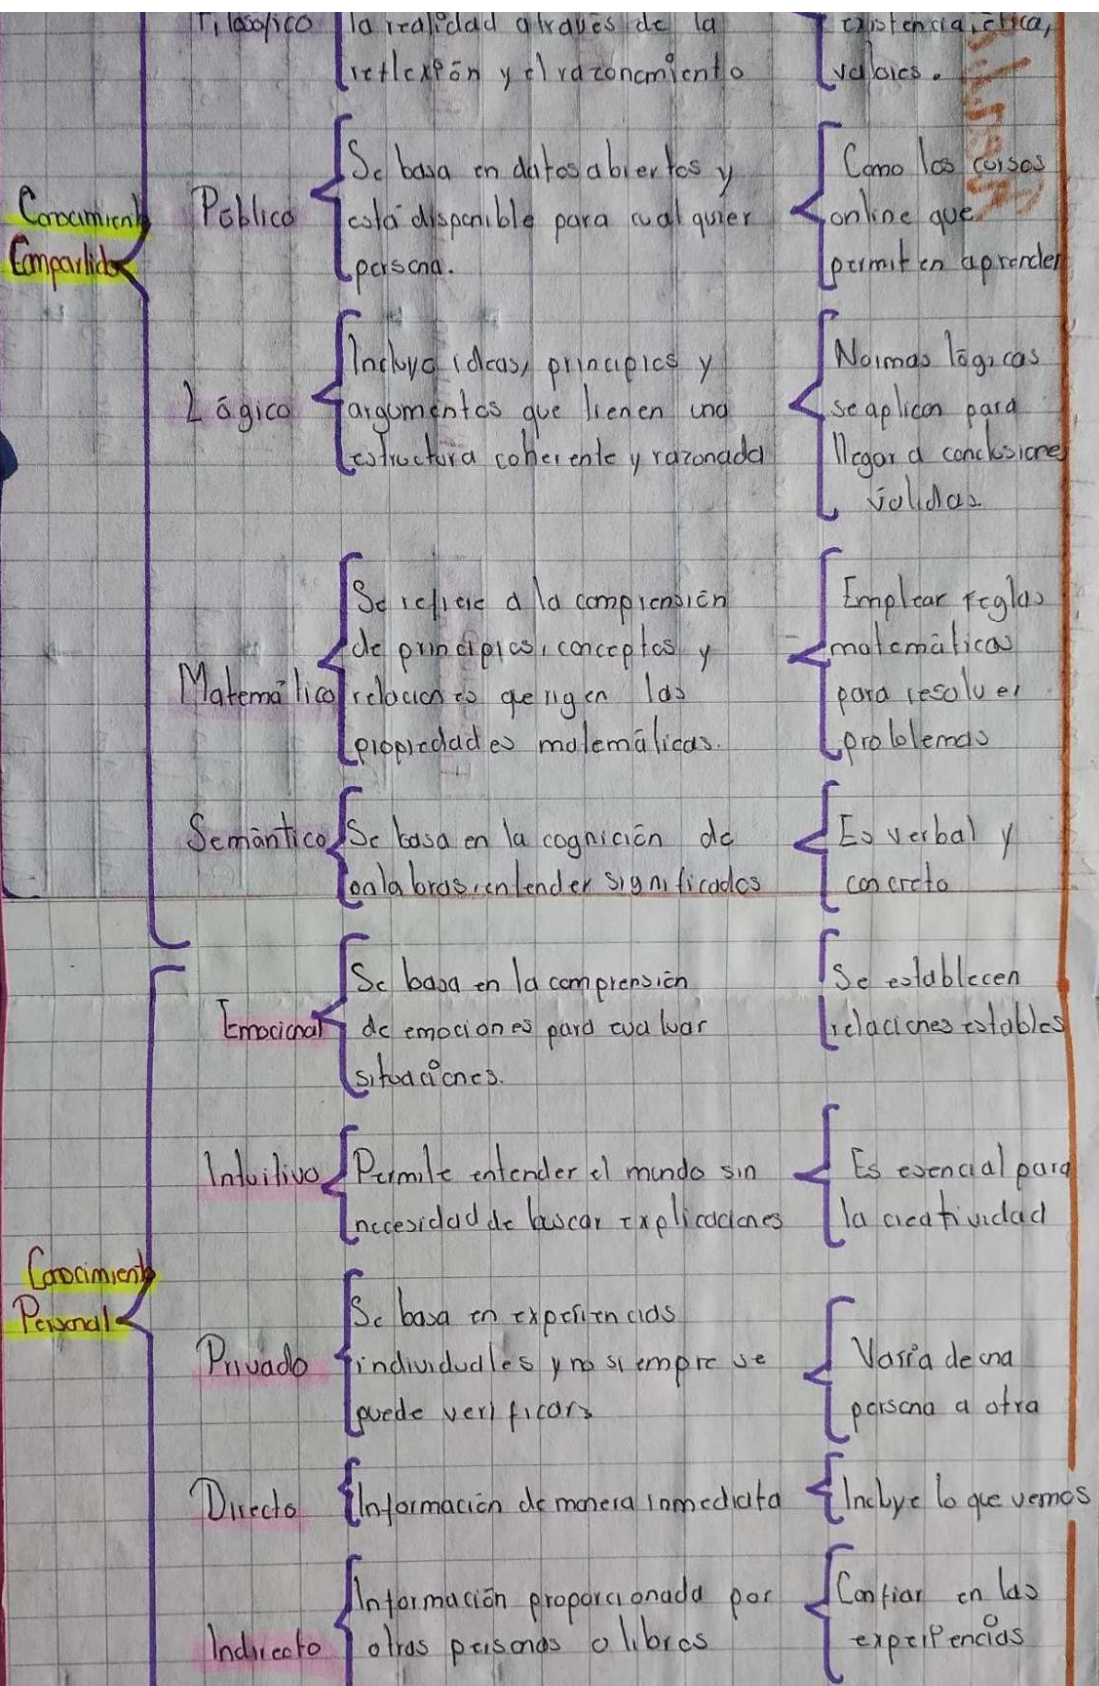 Filosófico
la realidad através de la
reflexión y el razonamiento
existencia, ética,
valores.
Conocimiento
Compartido
Público
Se basa en datos abiertos y
está disponible para cualquier
persona.
Como los cursos
online que
permiten aprender
Lógico
Incluye ideas, principios y
argumentos que tienen una
estructura coherente y razonada
Normas lógicas
se aplican para
llegar a conclusione
válidas
Matemático
Se refiere a la comprensión
de principios, conceptos y
relaciones que rigen las
propiedades matemáticas.
Emplear reglas
matemáticas
para resolver
problemas
Semántico
Se basa en la cognición de
palabras, entender significados
Es verbal y
concreto
Conocimiento
Personal
Emocional
Se basa en la comprensión
de emociones para evaluar
situaciones.
Se establecen
relaciones estables
Intuitivo
Permite entender el mundo sin
necesidad de buscar explicaciones
Es esencial para
la creatividad
Privado
Se basa en experiencias
individuales y no siempre se
puede verificar
Varía de una
persona a otra
Directo
Información de manera inmediata
Incluye lo que vemos
Indirecto
Información proporcionada por
otras personas o libros
Confiar en las
experiencias